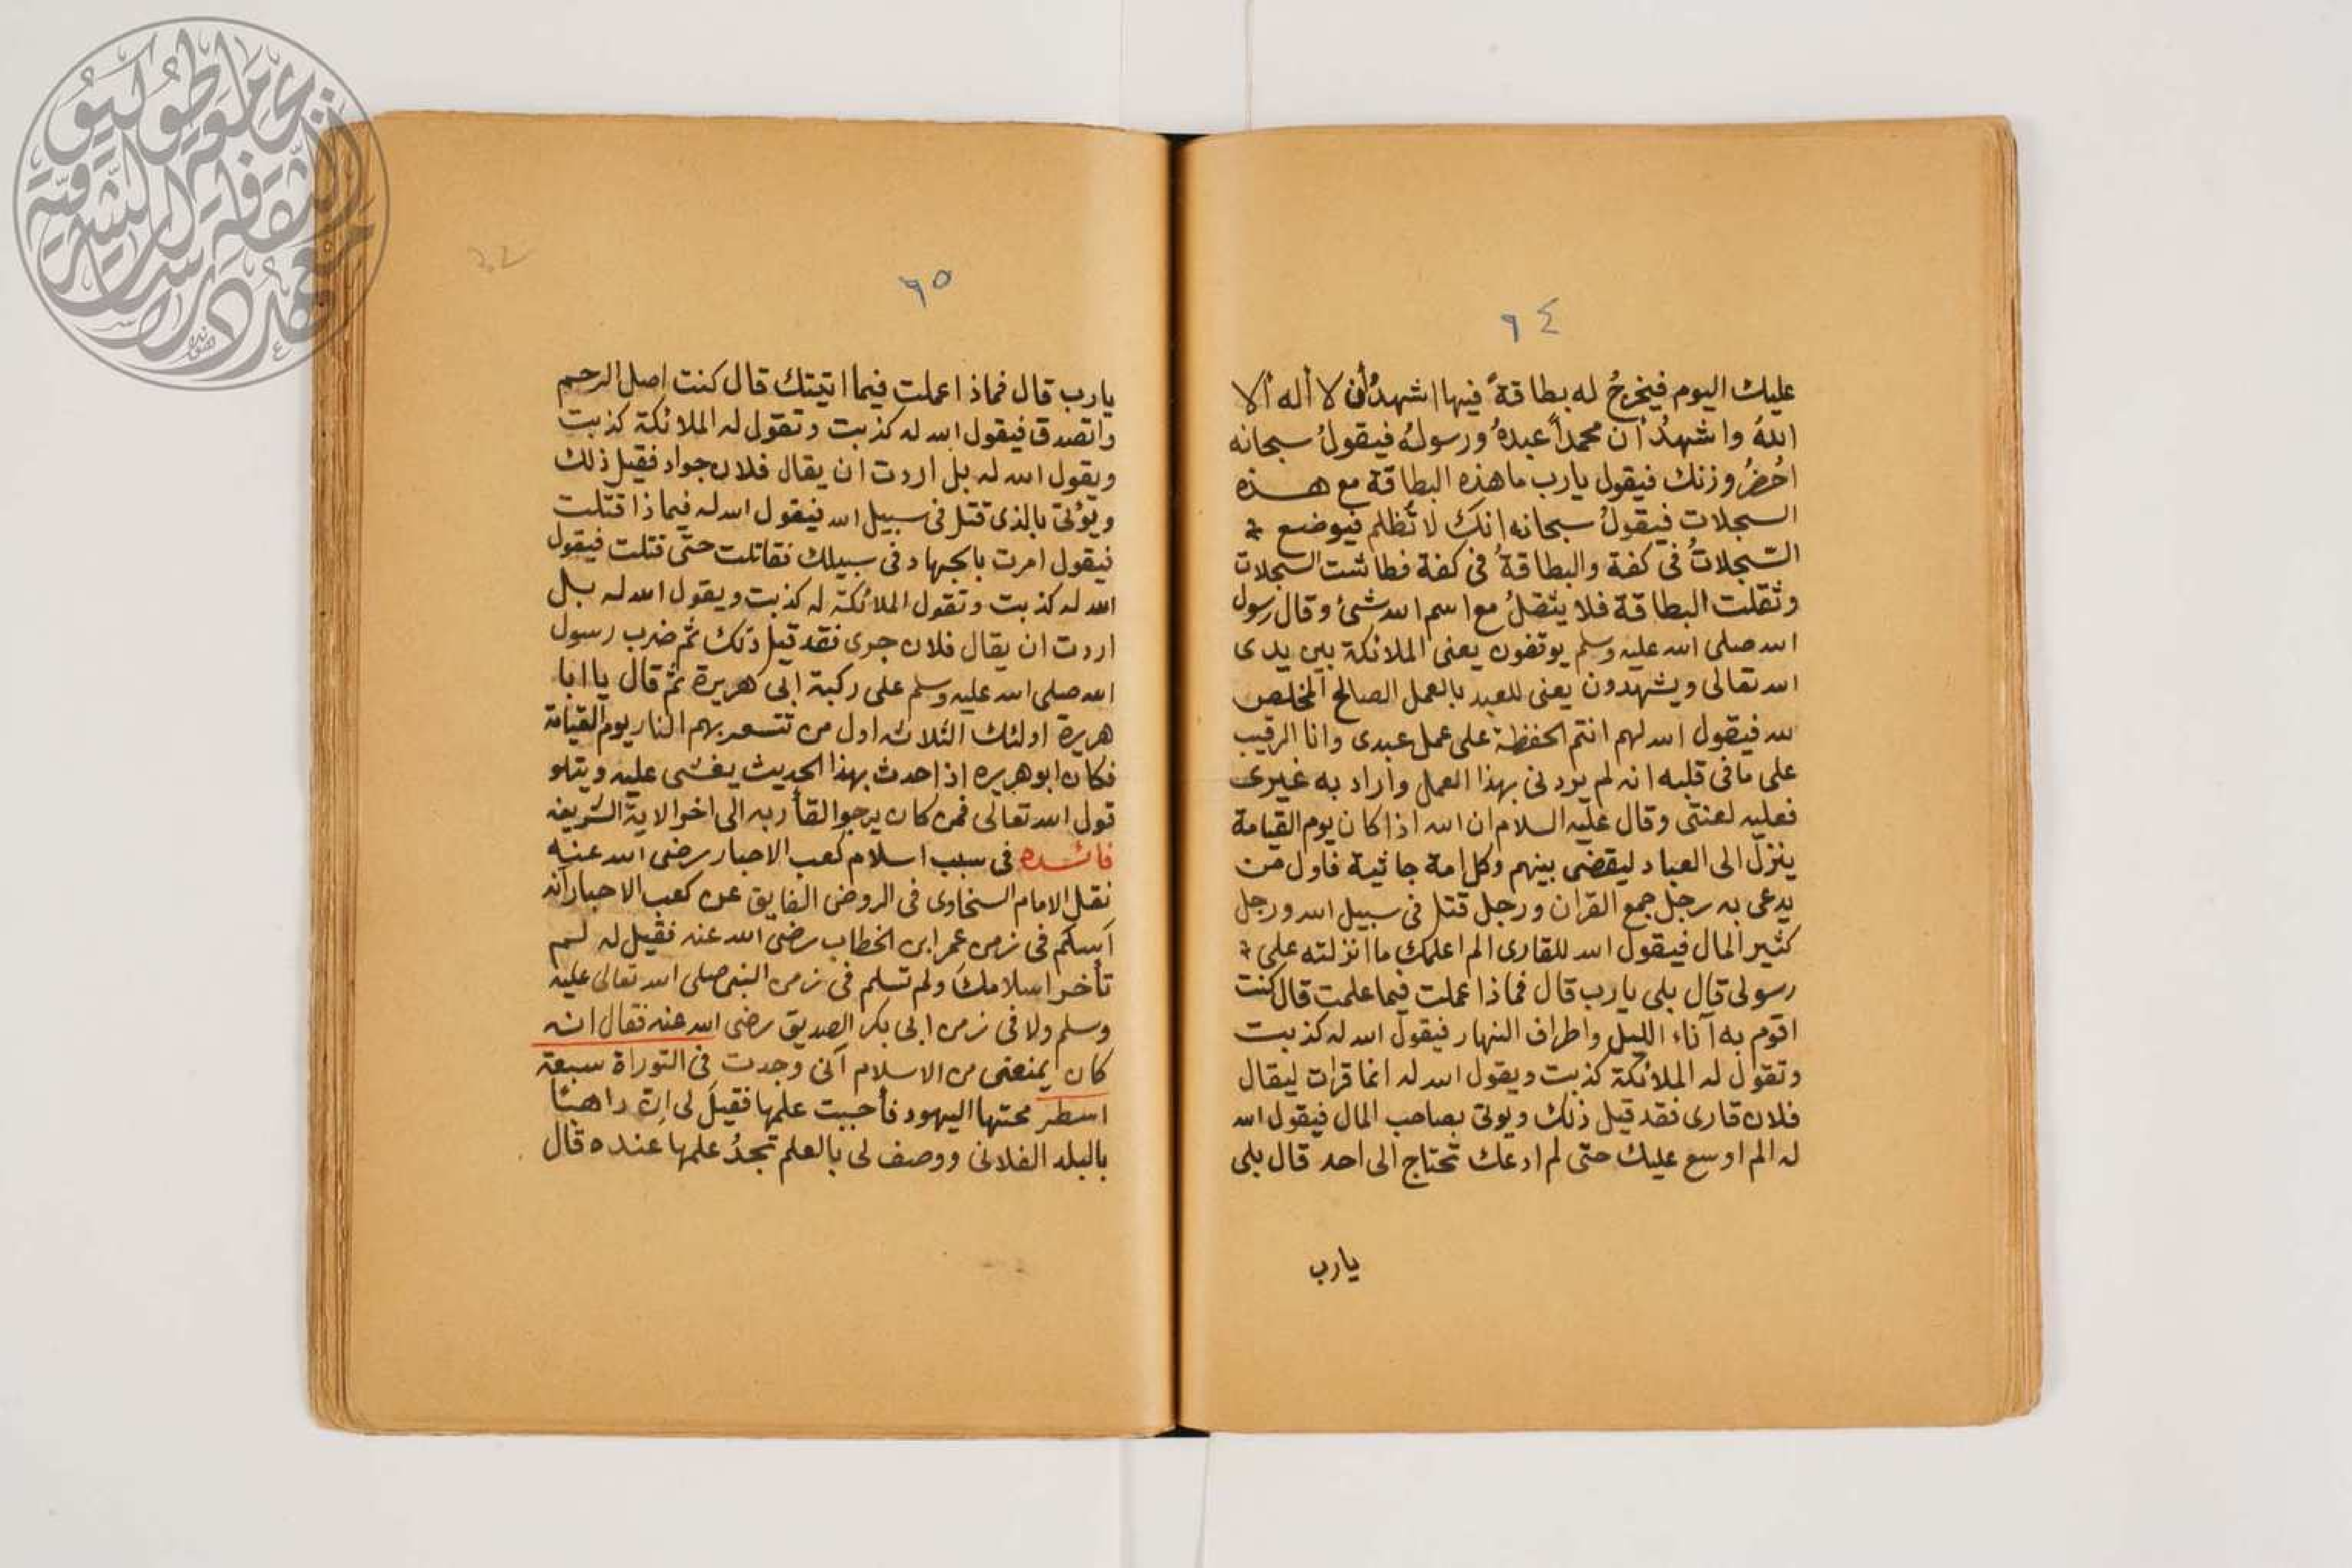 ٦٤
عليك اليوم فيخرجُ له بطاقةً فيها اشهدُ أن لا أله ألا
اللهُ واشهدُ أن محمداً عبدهُ ورسولهُ فيقولُ سبحانه
احُضُر وزنك فيقول يارب ما هذه البطاقة مع هـذه
السجلات فيقولُ سبحانه انكَ لا تُظلم فيوضع
السّجلاتُ في كفة والبطاقةُ في كفة فطاشت السجلات
وثقلت البطاقة فلا يثقلُ مع اسم الله شئ وقال رسول
الله صلى الله عليه وسلم يوقفون يعنى الملائكة بين يدى
الله تعالى ويشهدون يعنى للعبد بالعمل الصالح المخلص
لله فيقول الله لهم انتم الحفظة على عمل عبدى وانا الرقيب
على ما في قلبه انه لم يردنى بهذا العمل واراد به غيرى
فعليه لعنتى وقال عليه السلام ان الله اذا كان يوم القيامة
ينزل الى العباد ليقضى بينهم وكل امة جاثية فاول من
يدعى به رجل جمع القران ورجل قتل في سبيل الله ورجل
كثير المال فيقول الله للقارى الم اعلمك ما انزلته على
رسولى قال بلى يارب قال فماذا عملت فيما علمت قال كنت
اقوم به آناء الليل واطراف النهار فيقول الله له كذبت
وتقول له الملائكة كذبت ويقول الله له انما قرات ليقال
فلان قارى فقد قيل ذلك ويوتى بصاحب المال فيقول الله
له الم اوسع عليك حتى لم ادعك تحتاج الى احد قال بلى
يارب
٦٥
يارب قال فماذا عملت فيما اتيتك قال كنت اصل الرحم
واتصدق فيقول الله له كذبت وتقول له الملائكة كذبت
ويقول الله له بل اردت ان يقال فلان جواد فقيل ذلك
ويؤتى بالذى قتل في سبيل الله فيقول الله له فيماذا قتلت
فيقول امرت بالجهاد في سبيلك فقاتلت حتى قتلت فيقول
الله له كذبت وتقول الملائكة له كذبت ويقول الله له بل
اردت ان يقال فلان جرى فقد قيل ذلك ثم ضرب رسول
الله صلى الله عليه وسلم على ركبة ابى هريرة ثم قال يا ابا
هريرة اولئك الثلاثه اول من تتسعر بهم النار يوم القيامة
فكان ابو هريره اذا حدث بهذا الحديث يغشى عليه ويتلو
قول الله تعالى فمن كان يرجو القأ ربه الى اخر الاية الشريفه
فائده في سبب اسلام كعب الاحبار رضى الله عنه
نقل الامام السخاوى في الروض الفايق عن كعب الاحبار انه
اسلم في زمن عمر ابن الخطاب رضى الله عنه فقيل له لم
تأخر اسلامك ولم تسلم في زمن النبى صلى الله تعالى عليه
وسلم ولا في زمن ابى بكر الصديق رضى الله عنه فقال انه
كان يمنعنى من الاسلام انى وجدت في التوراة سبعة
اسطر محتها اليهود فأحببت علمها فقيل لى ان راهبًا
بالبلد الفلانى ووصف لى بالعلم تجدُ علمها عنده قال